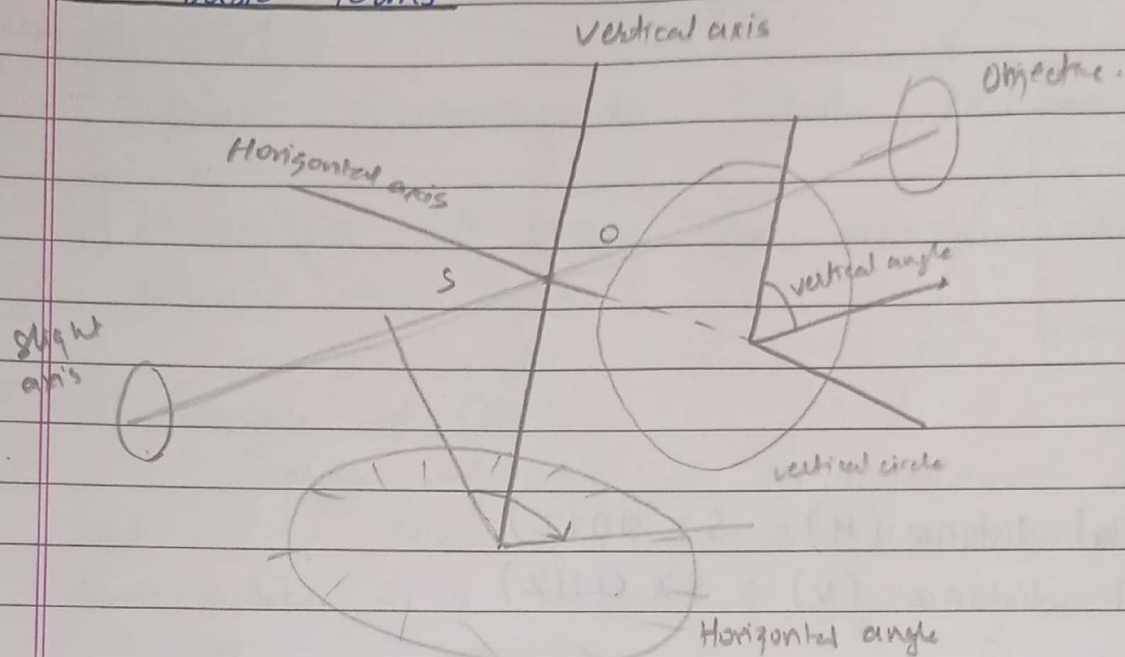 Vertical axis
Objective.
Horizontal axis
O
S
vertical angle
slight
axis
vertical circle
Horizontal angle